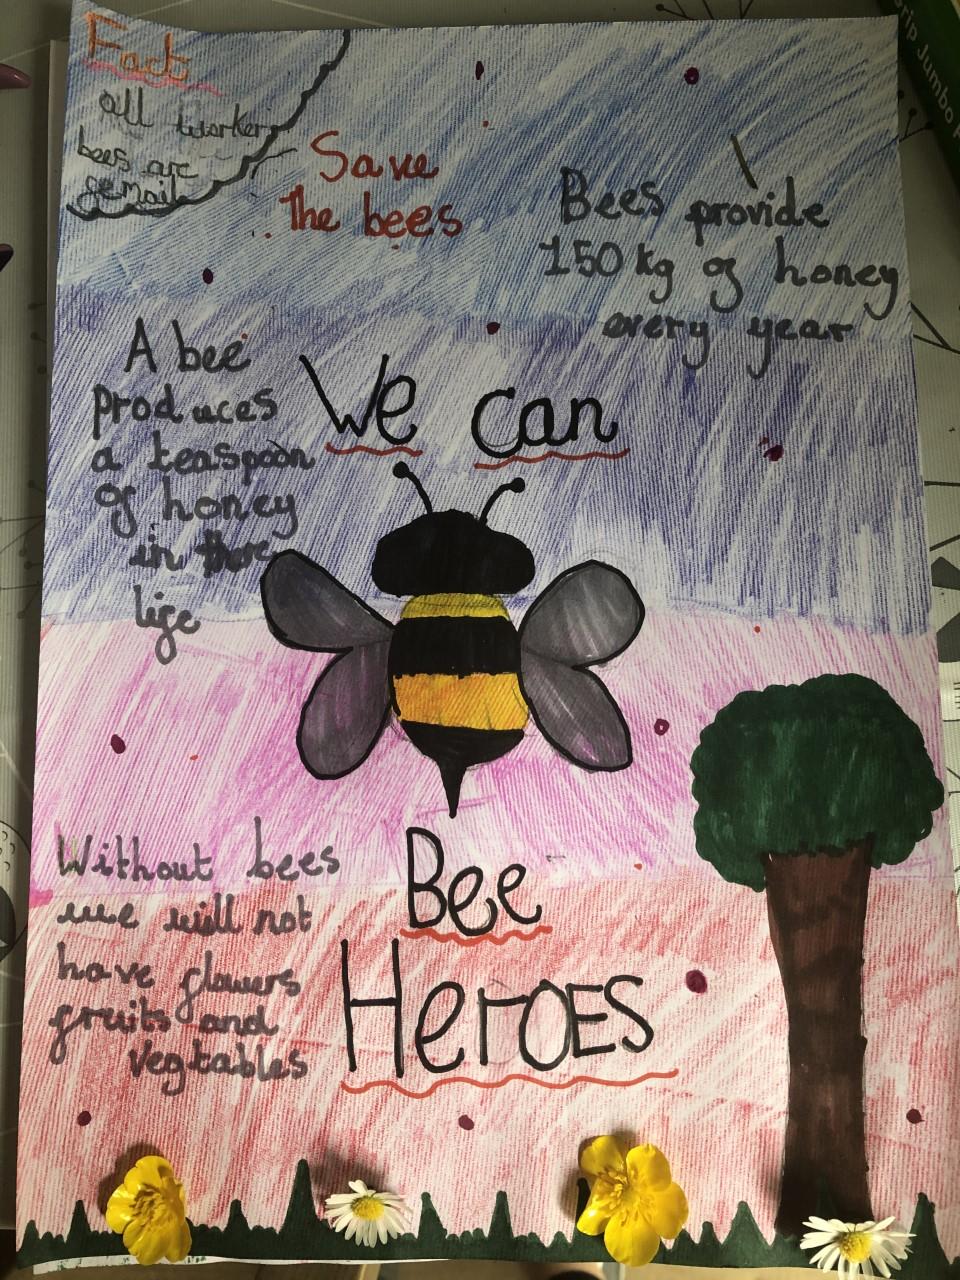 Fact
all worker
bees are
femail
Save
the bees
Bees provide
150 kg of honey
every year
A bee
produces
a teaspoon
of honey
in there
life
We can
Bee
Heroes
Without bees
we will not
have flowers
fruits and
vegtables
Grip Jumbo